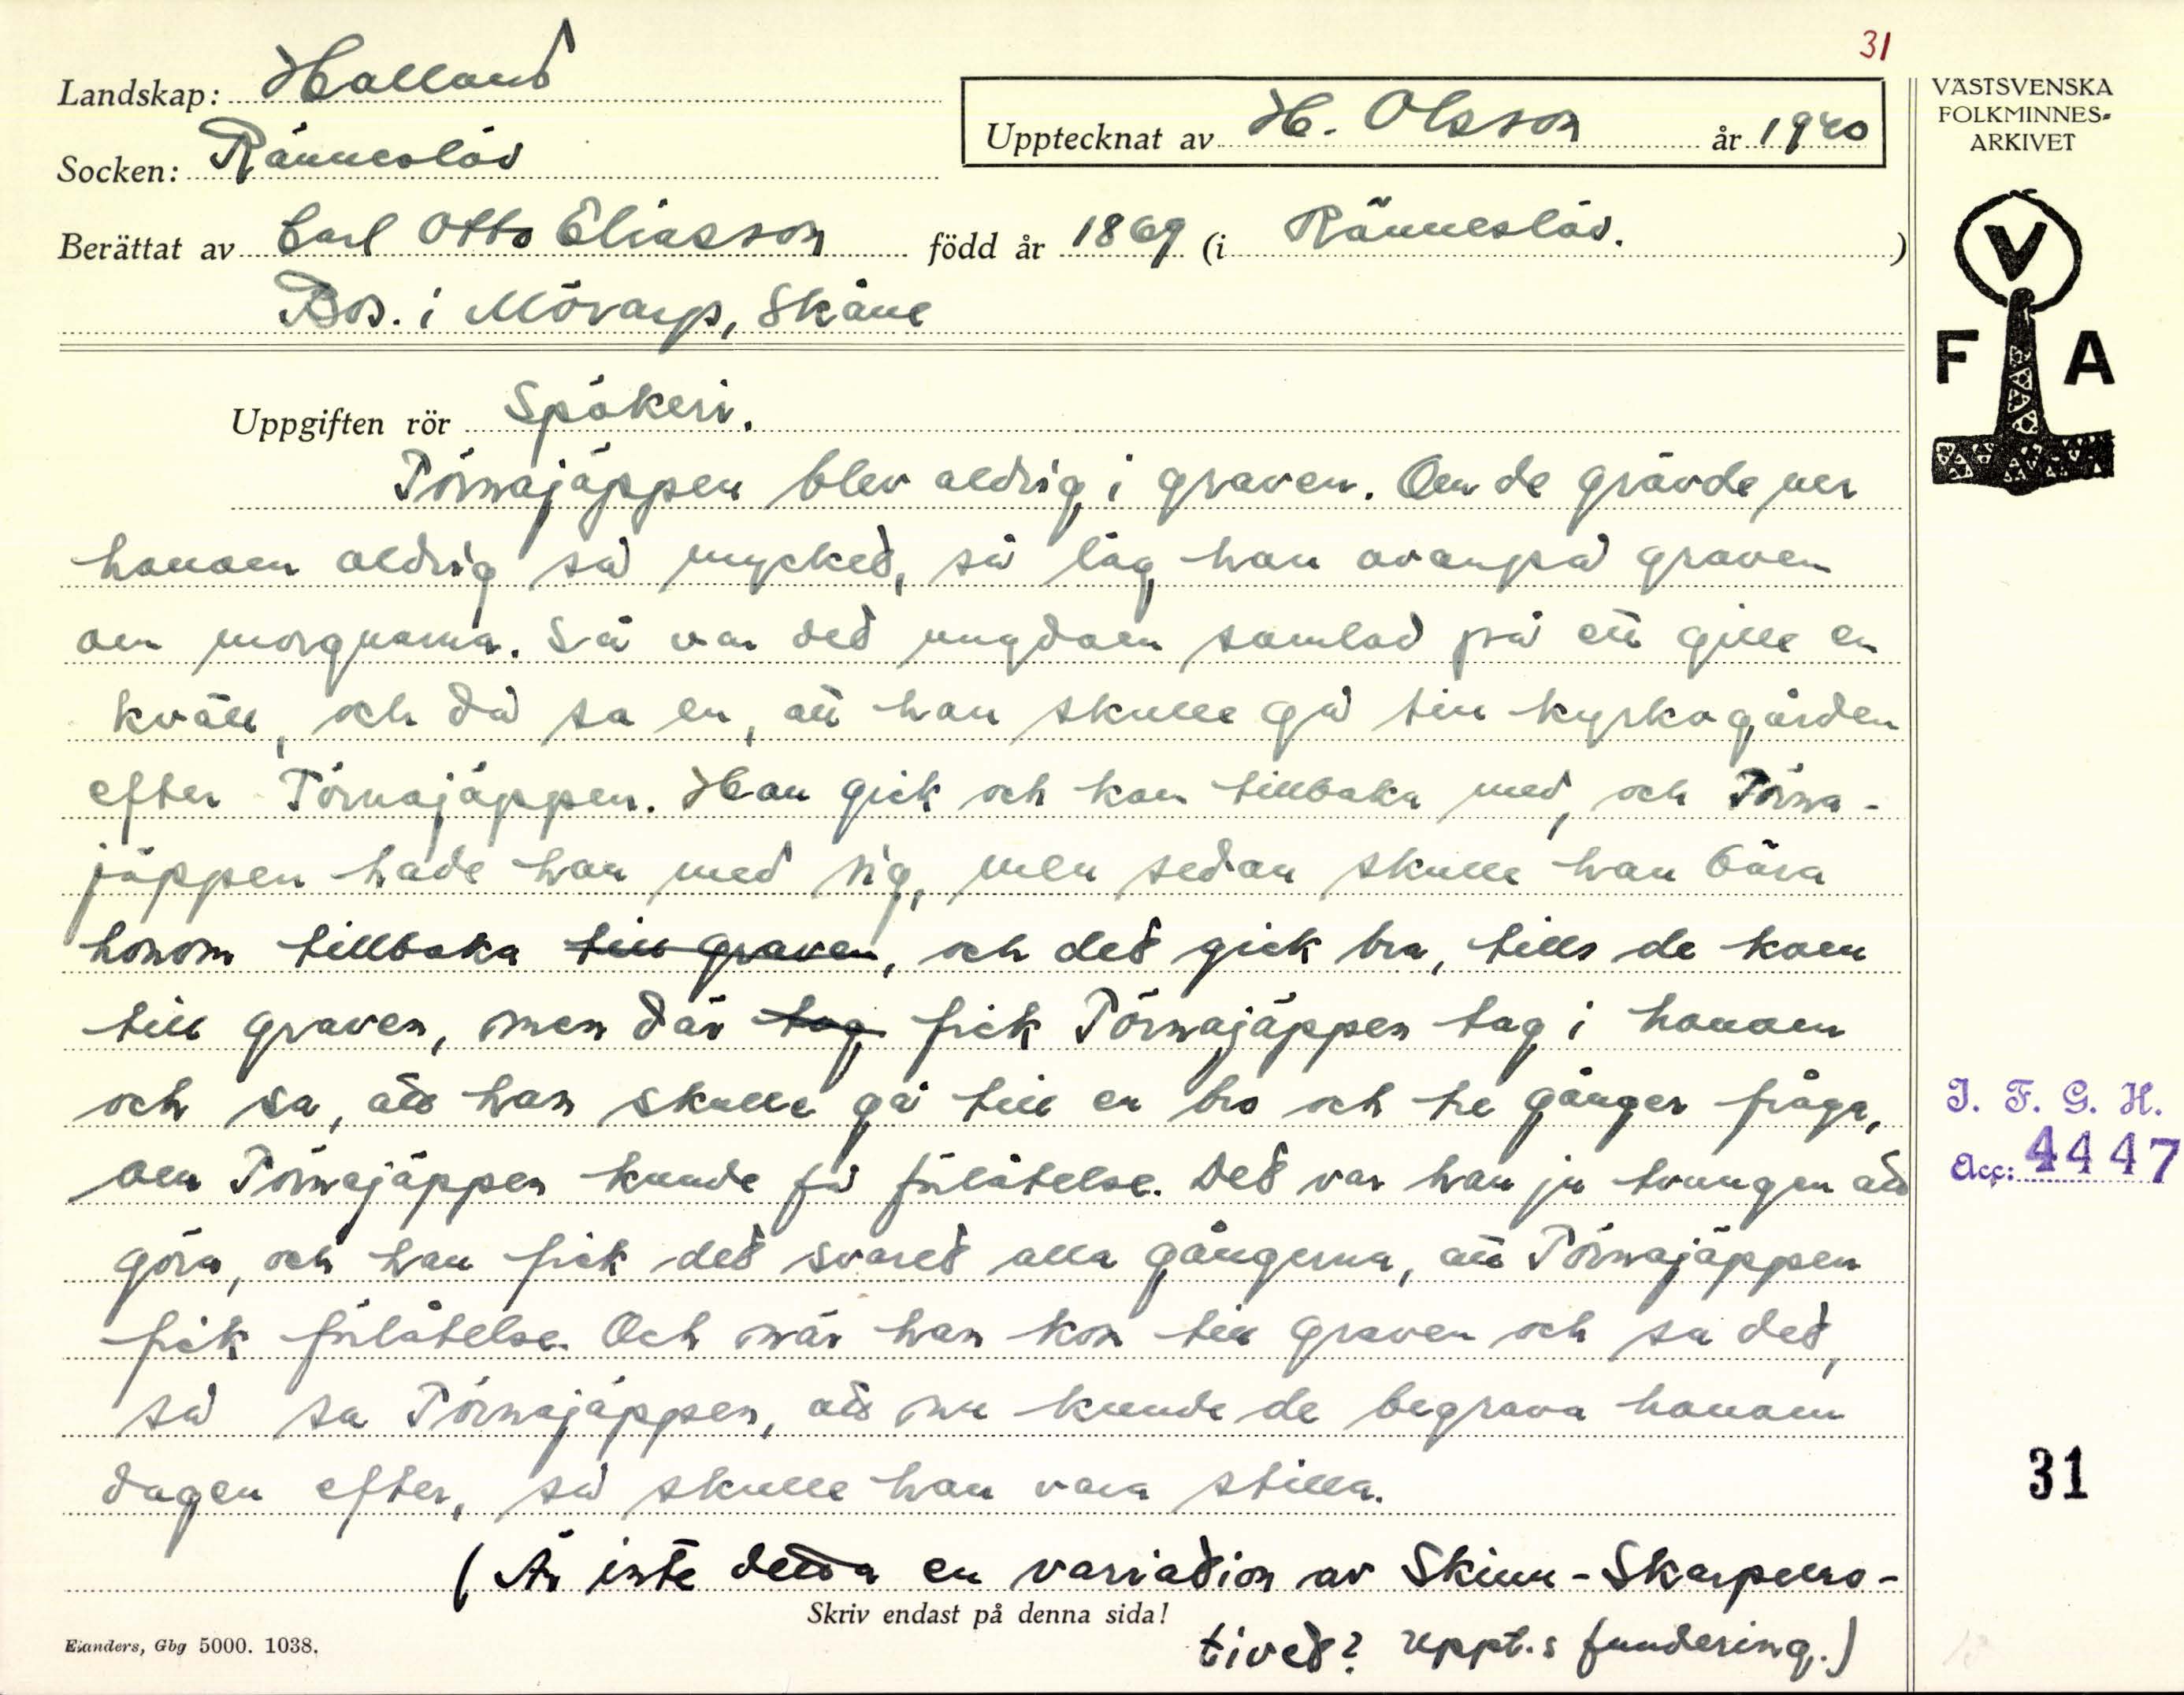 31
Landskap: Halland
Upptecknat av H. Olsson år 1940
Socken: Ränneslöv
Berättat av Carl Otto Eliasson född år 1869 (i Ränneslöv.)
Bos. i Mörarp, Skåne
VÄSTSVENSKA
FOLKMINNES-
ARKIVET
V
F A
Uppgiften rör Spökeri.
Törnajäppen blev aldrig i graven. Om de grävde ner
honom aldrig så mycket, så låg han ovanpå graven
om morgnarna. Så var det ungdom samlad på ett gille en
kväll, och då sa en, att han skulle gå till kyrkogården
efter Törnajäppen. Han gick och kom tillbaka med, och Törna-
jäppen hade han med sig, men sedan skulle han bära
honom tillbaka till graven, och det gick bra, tills de kom
till graven, men där tog fick Törnajäppen tag i honom
och sa, att han skulle gå till en bro och tre gånger fråga,
om Törnajäppen kunde få förlåtelse. Det var han ju tvungen att
göra, och han fick det svaret alla gångerna, att Törnajäppen
fick förlåtelse. Och när han kom till graven och sa det,
så sa Törnajäppen, att nu kunde de begrava honom
dagen efter, så skulle han vara stilla.
(Är inte detta en variation av Skinn-Skarpmo-
tivet? Uppt.s fundering.)
Skriv endast på denna sida!
Elanders, Gbg 5000. 1038.
I. F. G. H.
Acc: 4447
31